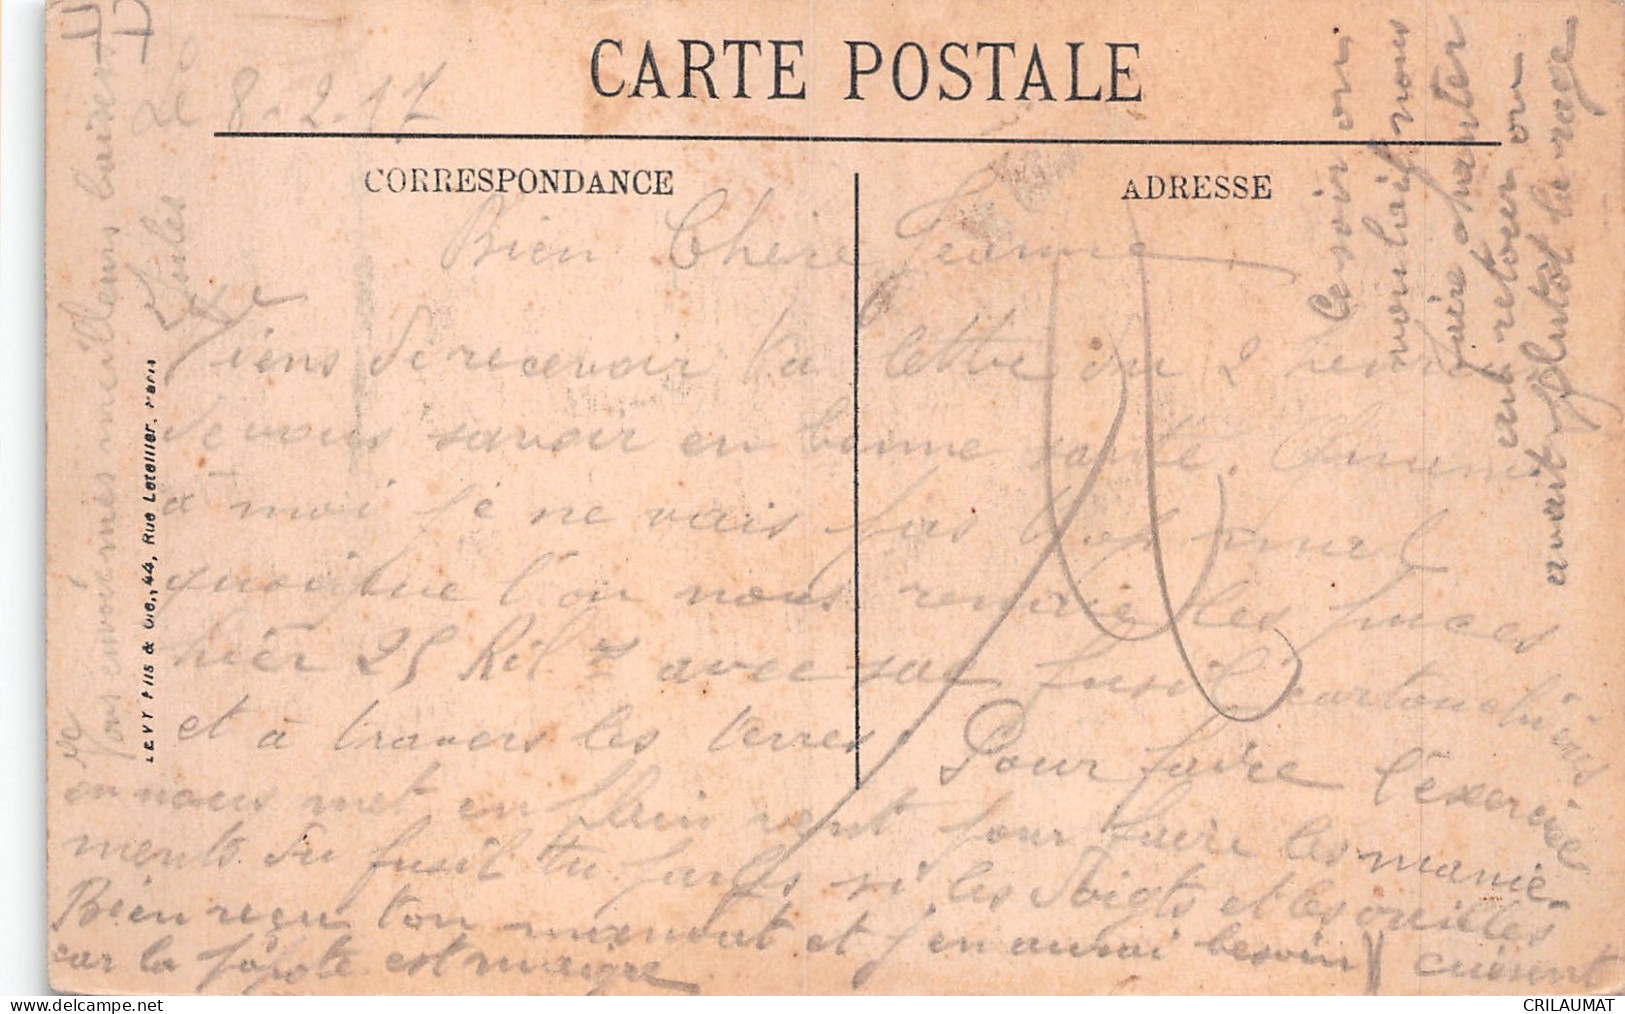 CARTE POSTALE
8-2-17
CORRESPONDANCE
ADRESSE
Bien Chere Jeanne
Viens de recevoir ta lettre du 2 heureux
de vous savoir en bonne santé. Quand
à moi je ne vais pas trop mal
quoique l'on nous rendre les puces
hier 25 Kil m avec sac fusil cartouchières
et à travers les terres. Pour faire l'exercice
on nous met en plein vent pour faire les manie-
ments du fusil tu parles si les doigts et les oreilles
cuisent
Bien reçu ton mandat et j'en aurai besoin
car la popote est maigre
Ce soir on
voulait nous
faire chanter
au retour on
avait plutôt la rage
Je
vous envoie mes meilleurs baisers
Jules
LEVY Fils & Cie., 44, Rue Letellier, Paris
CRILAUMAT
delcampe.net